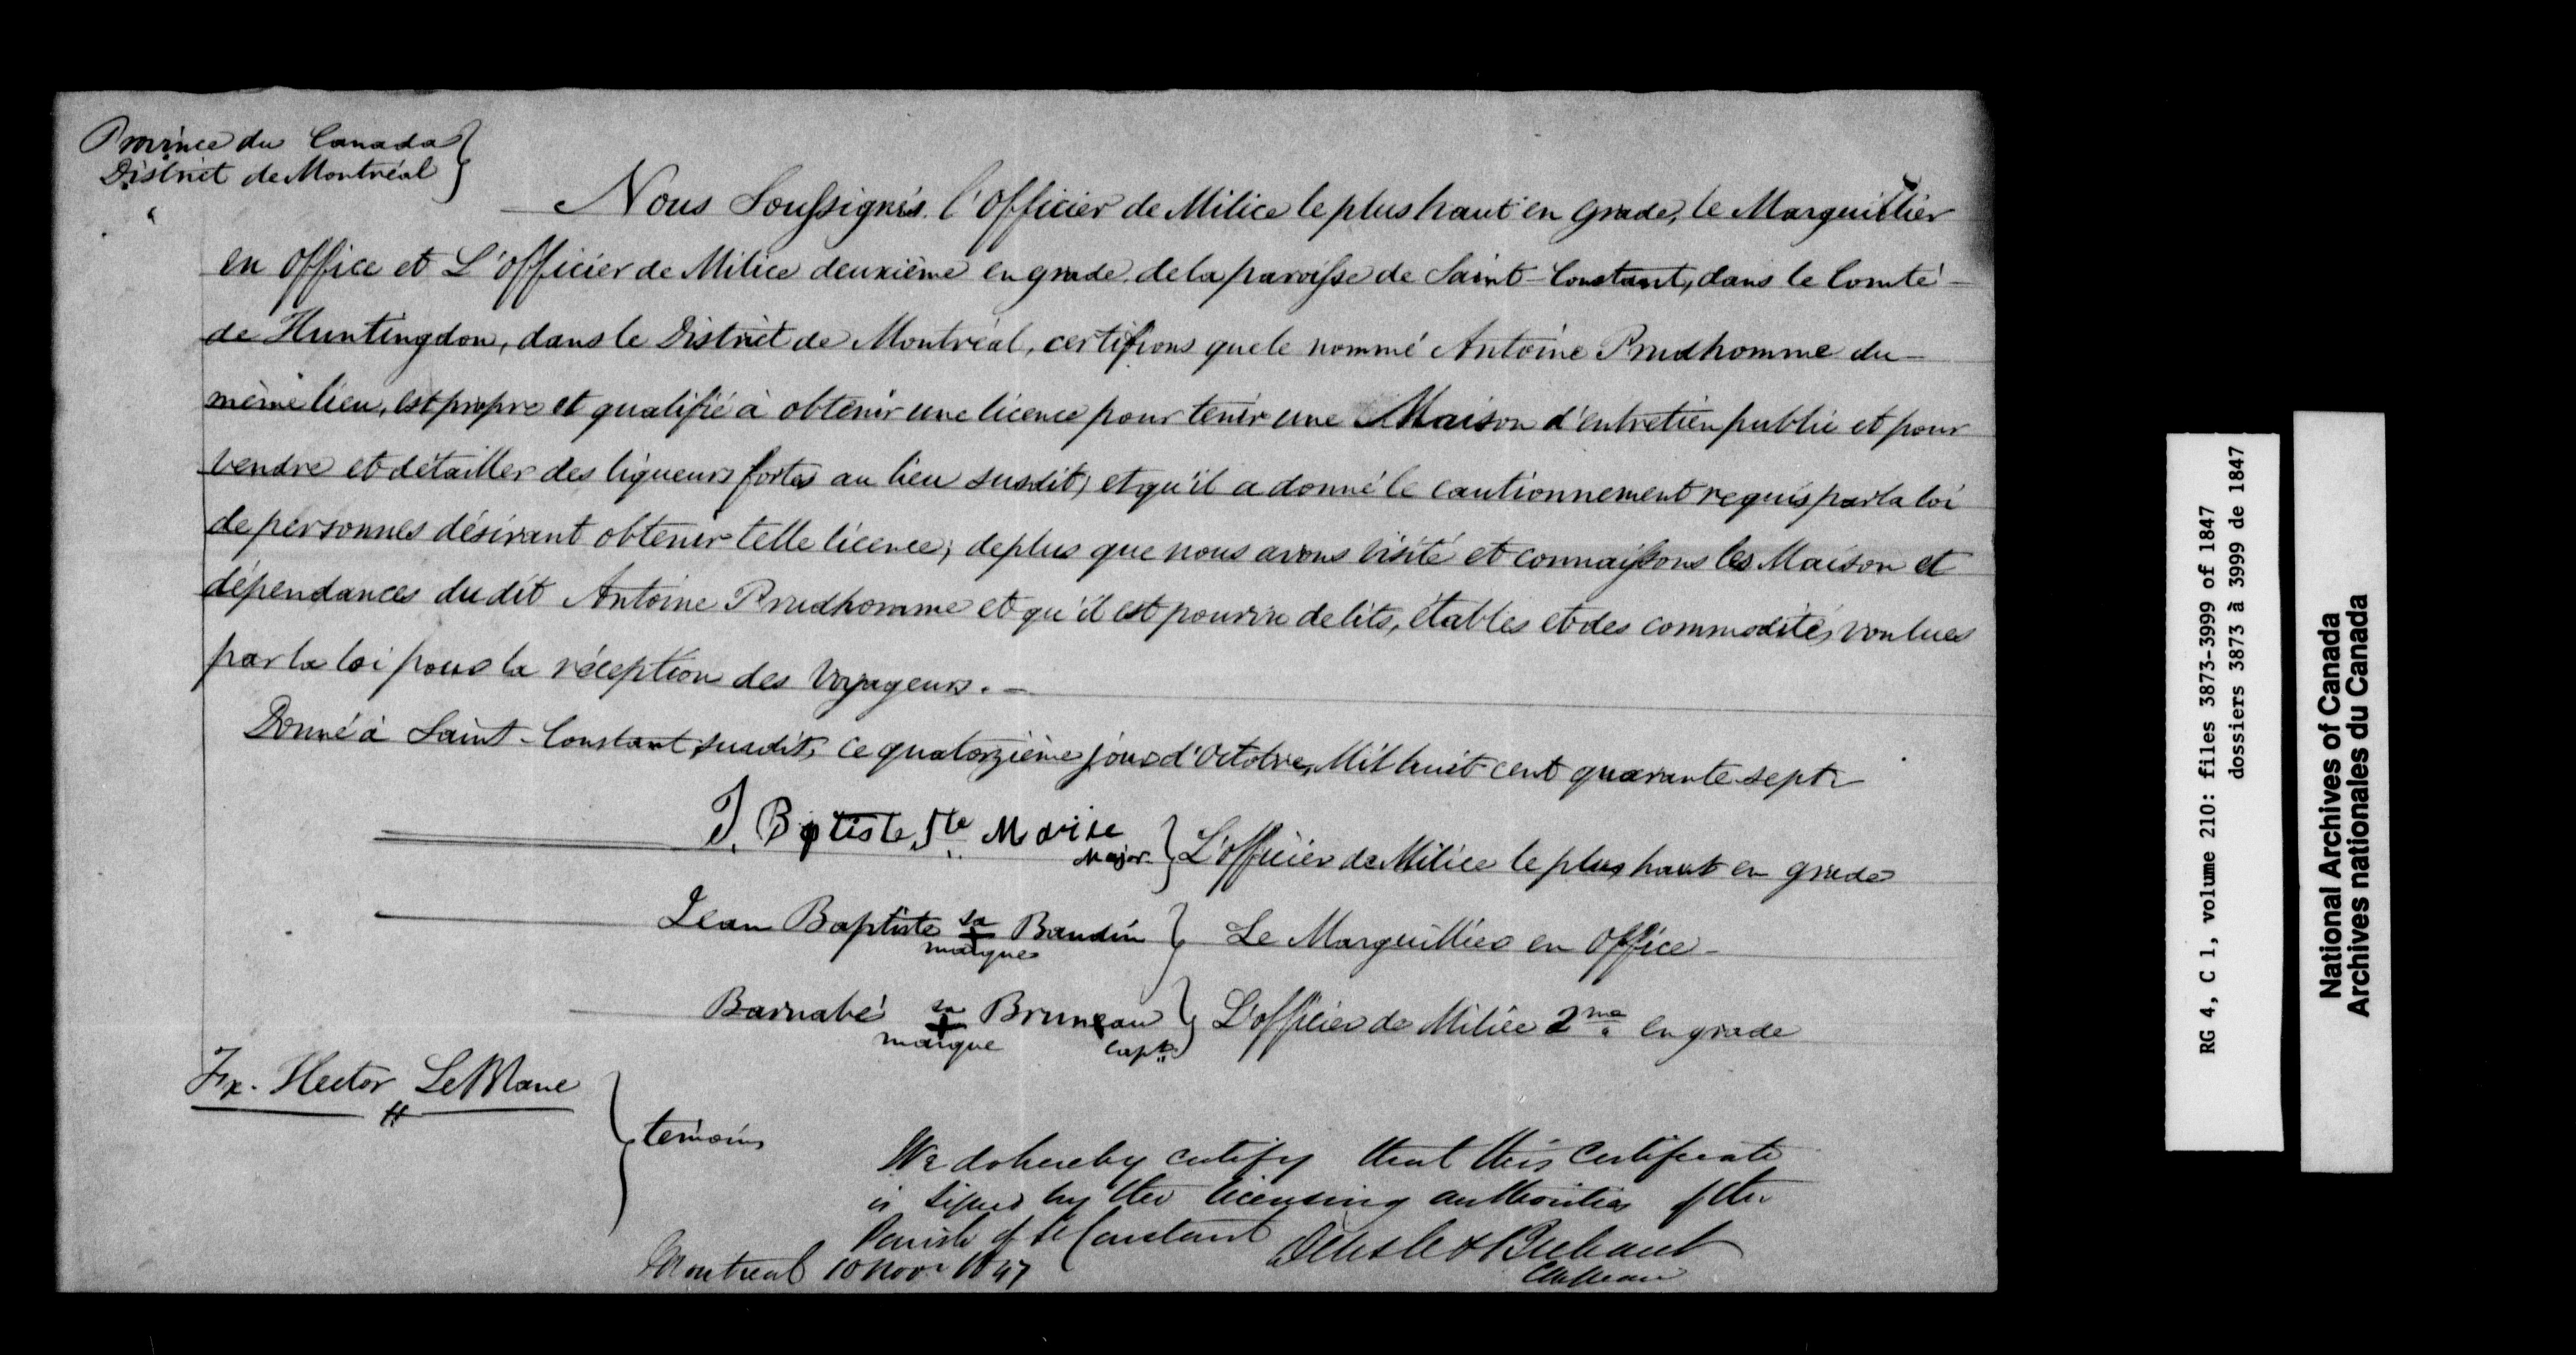 Province du Canada
District de Montréal
Nous Soussignés l'Officier de Milice le plus haut en grade, le Marguillier
en Office et L'officier de Milice deuxième en grade de la paroisse de Saint-Constant, dans le Comté
de Huntingdon, dans le District de Montréal, certifions que le nommé Antoine Prudhomme du
même lieu, est propre et qualifié à obtenir une licence pour tenir une Maison d'entretien public et pour
vendre et détailler des liqueurs fortes au lieu susdit, et qu'il a donné le cautionnement requis par la loi
de personnes désirant obtenir telle licence; de plus que nous avons visité et connaissons les Maison et
dépendances du dit Antoine Prudhomme et qu'il est pourvu de lits, étables et des commodités voulues
par la loi pour la réception des Voyageurs.
Donné à Saint-Constant susdit, ce quatorzième jour d'Octobre, Mil huit cent quarante-sept
J. Bptiste Ste Marie
Major
L'officier de Milice le plus haut en grade
Jean Baptiste sa + marque Baudin
Le Marguillier en Office
Barnabé sa + marque Bruneau
Capt.
L'officier de Milice 2me en grade
Fx. Hector LeBlanc
témoins
We do hereby certify that this Certificate
is signed by the licensing authorities of the
Parish of St Constant
Delisle & Brehaut
Montreal 10 Novr 1847
RG 4, C 1, volume 210: files 3873-3999 of 1847
dossiers 3873 à 3999 de 1847
National Archives of Canada
Archives nationales du Canada